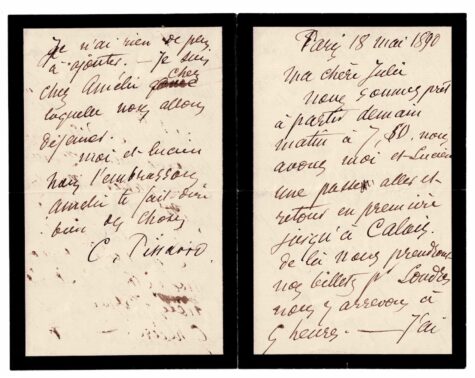 Paris 18 mai 1890
ma chère Julie
nous sommes prêt
à partir demain
matin à 7,50. nous
avons moi et Lucien
une passe aller et
retour en première
jusqu'à Calais.
de là nous prendrons
nos billets pr Londres
nous y arrivons à
5 heures. — J'ai
Je n'ai rien de plus
à ajouter. — Je suis
chez Amélie chez
laquelle nous allons
déjeuner.
moi et Lucien
nous t'embrassons
Amélie te fait dire
bien des choses
C. Pissarro